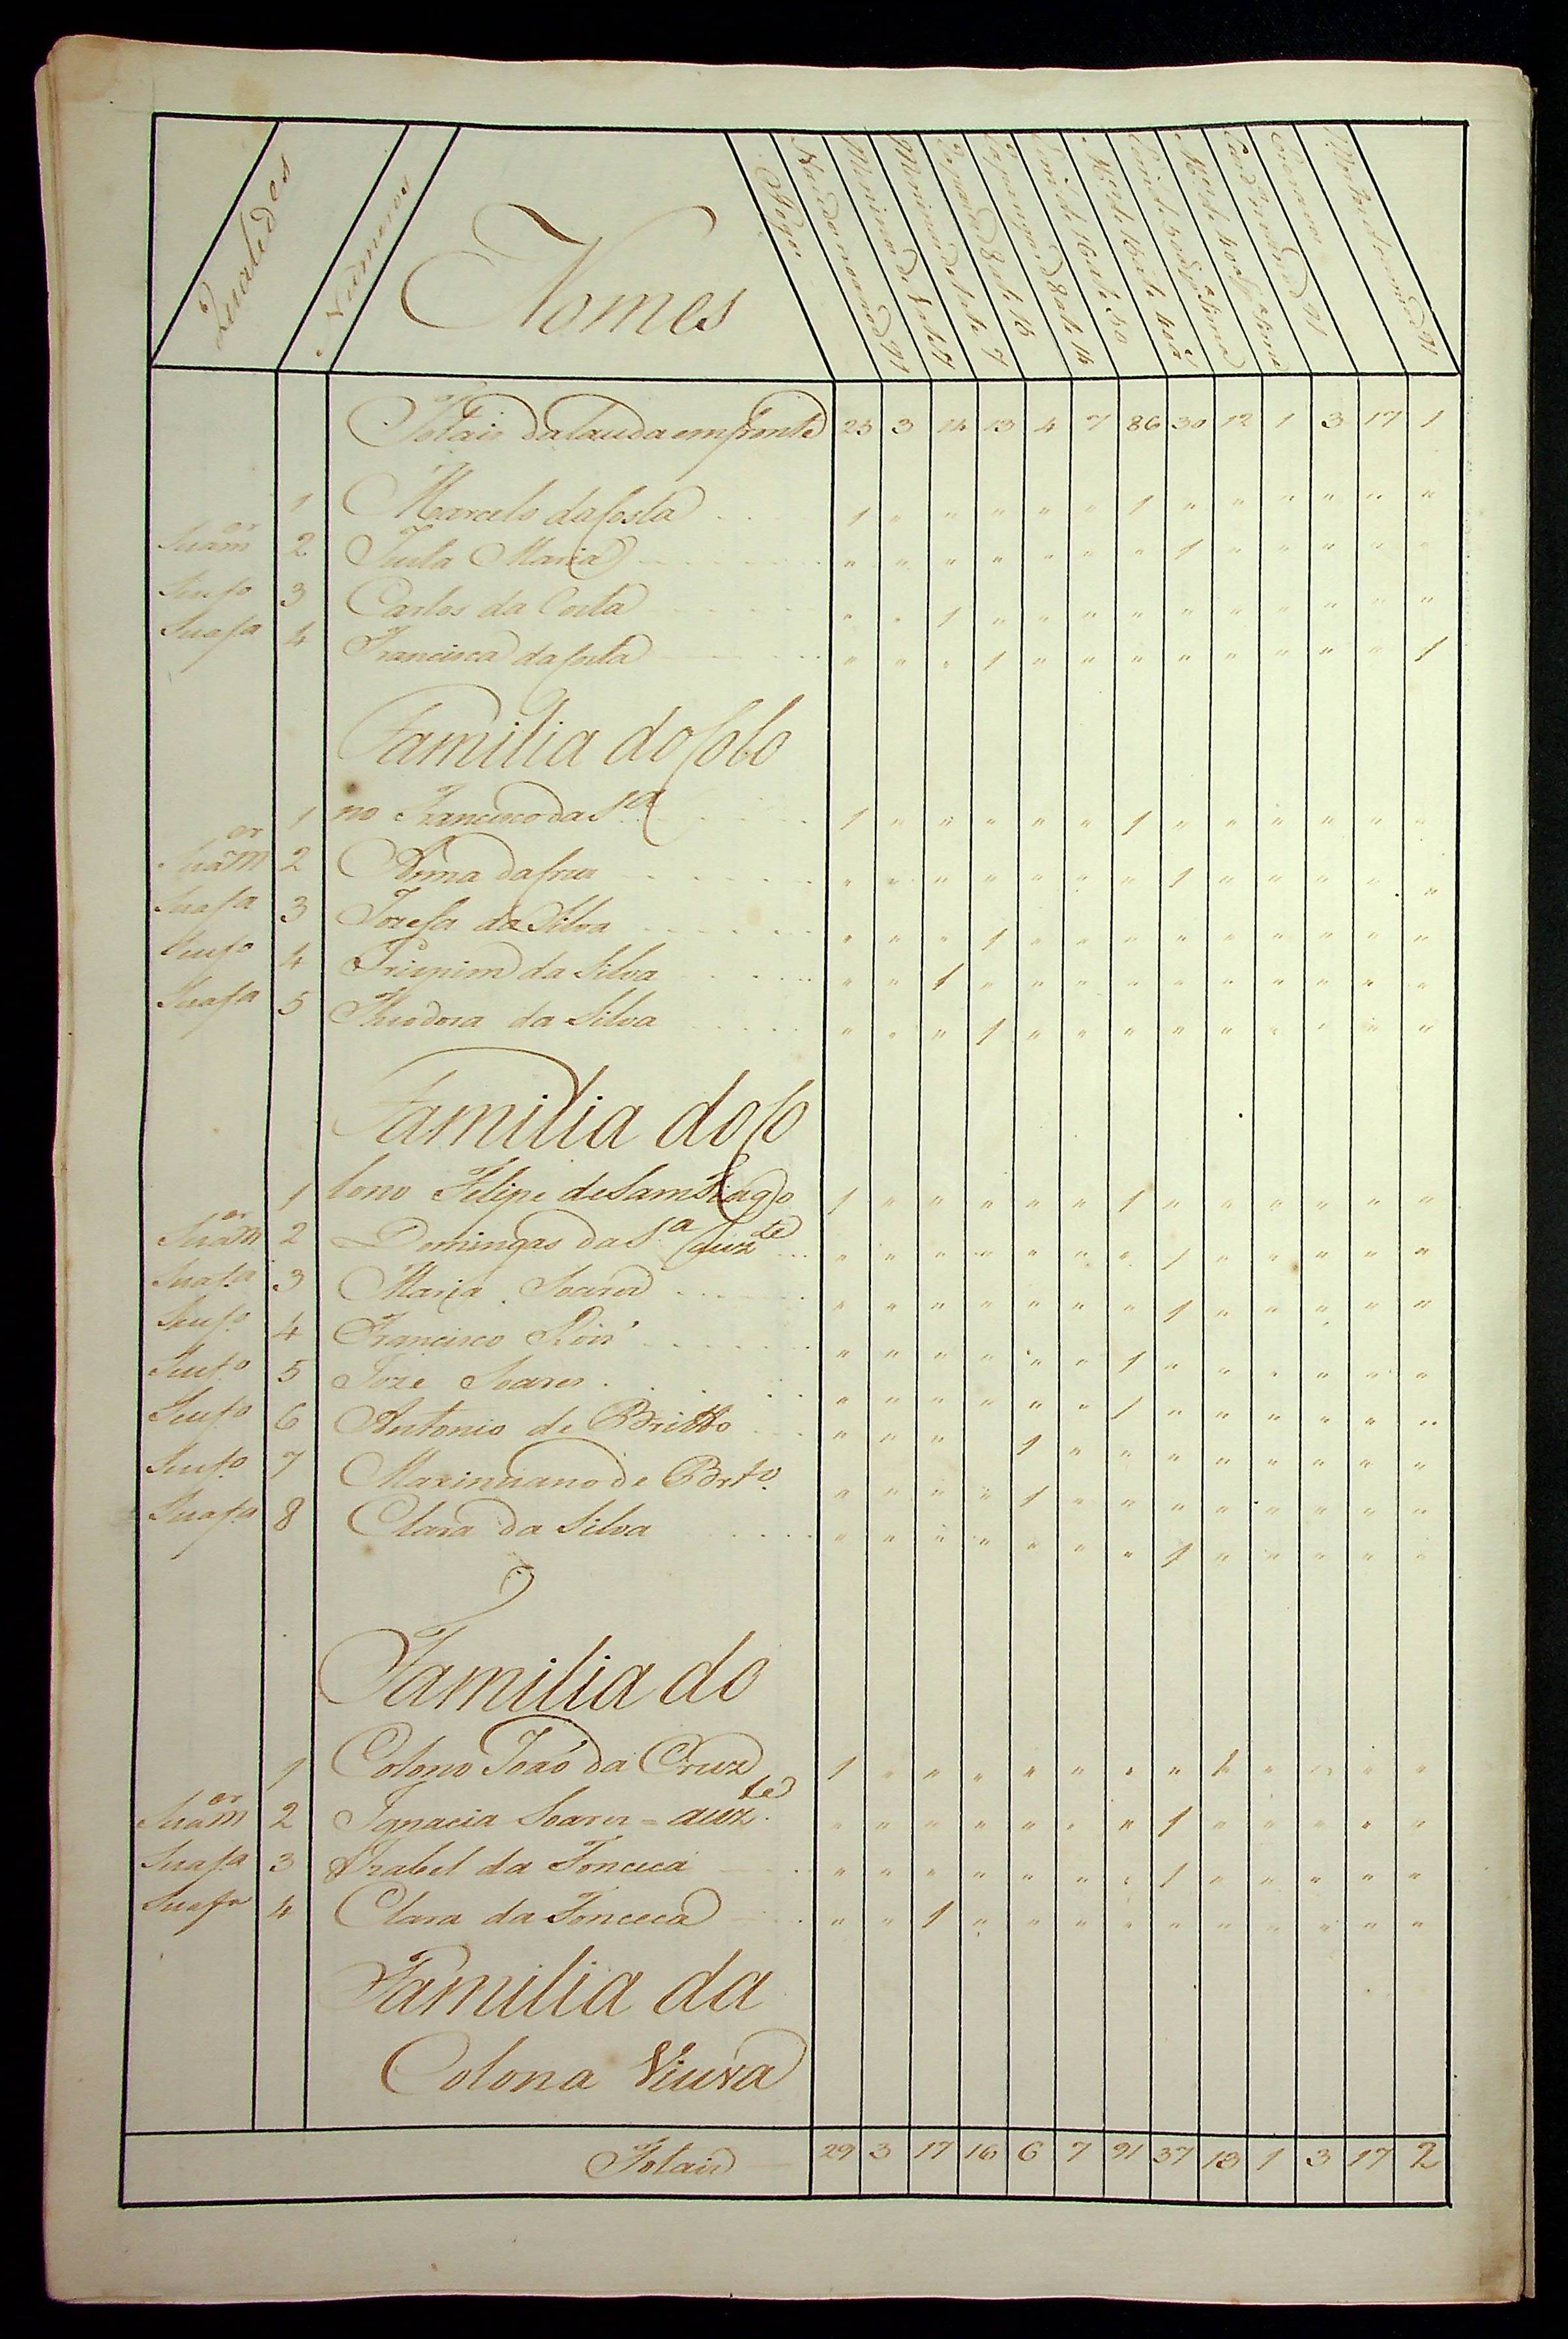 Qualid.es Numeros Nomes Fogos
Totais da lauda em fronte 25 3 14 13 4 7 86 30 12 1 3 17 1
1 Marcelo da Costa 1 " " " " " 1 " " " " " "
Sua m.er 2 Justa Maria " " " " " " " 1 " " " " "
Seu f.o 3 Carlos da Costa " " 1 " " " " " " " " " "
Sua f.a 4 Francisca da Costa " " " 1 " " " " " " " " 1
Familia do Colo
1 no Francisco da S.a 1 " " " " " 1 " " " " " "
Sua m.er 2 Anna da Cruz " " " " " " " 1 " " " " "
Sua f.a 3 Jozefa da Silva " " " 1 " " " " " " " " "
Seu f.o 4 Crispim da Silva " " 1 " " " " " " " " " "
Sua f.a 5 Theodora da Silva " " " 1 " " " " " " " " "
Familia do Co
1 lono Felipe de Sam Tiago 1 " " " " " 1 " " " " " "
Sua m.er 2 Domingas da S.a auz.te " " " " " " " 1 " " " " "
Sua f.a 3 Maria Soares " " " " " " " 1 " " " " "
Seu f.o 4 Francisco Roiz " " " " " " 1 " " " " " "
Seu f.o 5 Joze Soares " " " " " " 1 " " " " " "
Seu f.o 6 Antonio de Britto " " " 1 " " " " " " " "
Seu f.o 7 Maximiano de Brt.o " " " " 1 " " " " " " " "
Sua f.a 8 Clara da Silva " " " " " " " 1 " " " " "
Familia do
1 Colono João da Cruz 1 " " " " " " " 1 " " " "
Sua m.er 2 Ignacia Soares = auz.te " " " " " " " 1 " " " " "
Sua f.a 3 Izabel da Fonceca " " " " " " " 1 " " " " "
Sua f.a 4 Clara da Fonceca " " 1 " " " " " " " " " "
Familia da
Colona Viuva
Totais 29 3 17 16 6 7 91 37 13 1 3 17 2